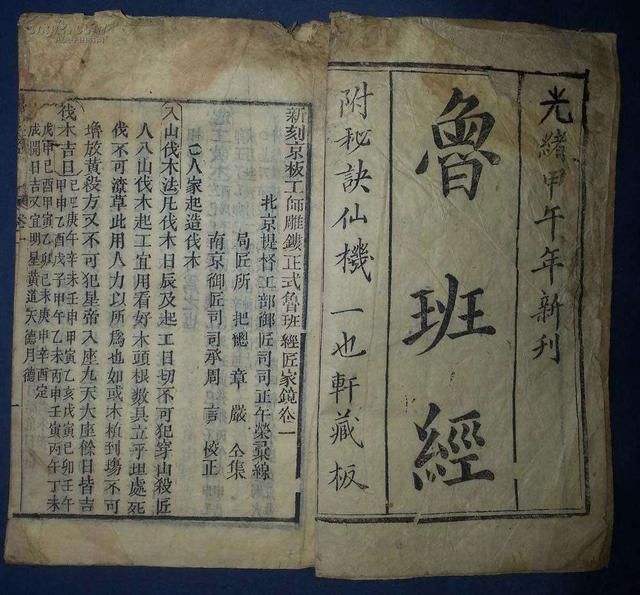 光緒甲午年新刊
魯班經
附秘訣仙機 一也軒藏板
新刻京板工師雕鏤正式魯班經匠家鏡卷一
北京提督工部御匠司司正午榮彙編
局匠所把總章嚴仝集
南京御匠司司承周言校正
人家起造伐木
入山伐木法凡伐木日辰及起工日切不可犯穿山殺匠
人入山伐木起工宜用看好木頭根數具立平坦處死
伐不可潦草此用人力以所爲也如或木植到塲不可
堆放黃殺方又不可犯皇帝八座九天大座餘日皆吉
伐木吉日己巳庚午辛未壬申甲寅乙亥戊寅己卯壬午
甲申乙酉戊子甲午乙未丙申壬寅丙午丁未
戊申己酉甲寅乙卯己未庚申辛酉定
成開日吉又宜明星黃道天德月德